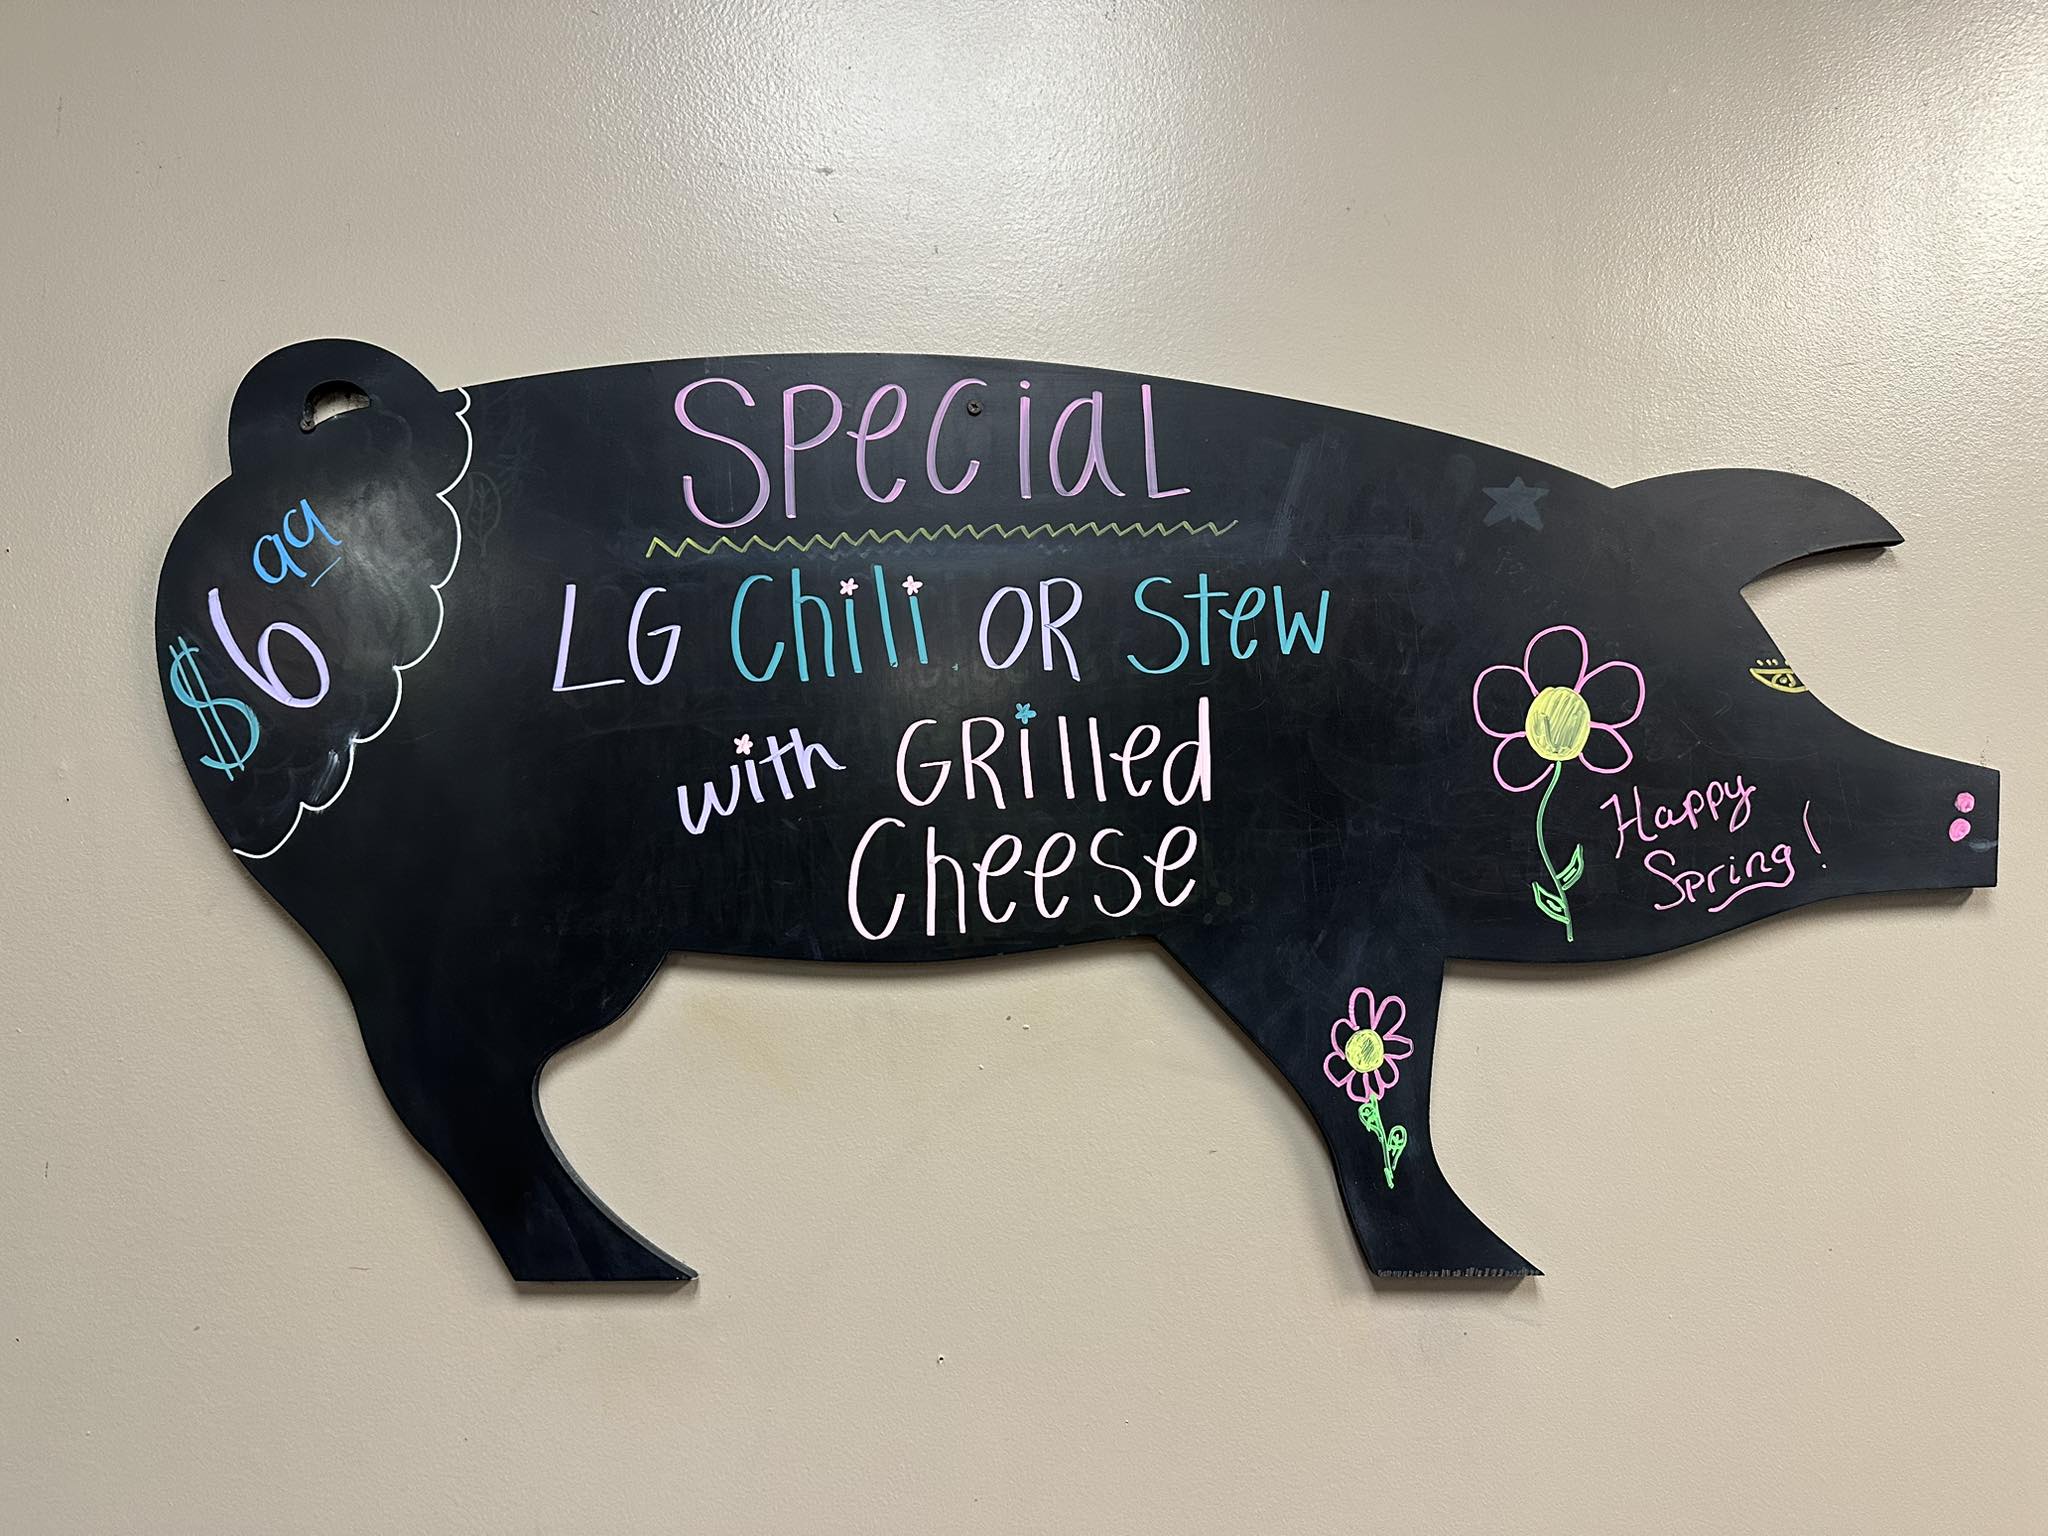 Special
$6 99
LG Chili OR Stew
with GRilled
Cheese
Happy
Spring!